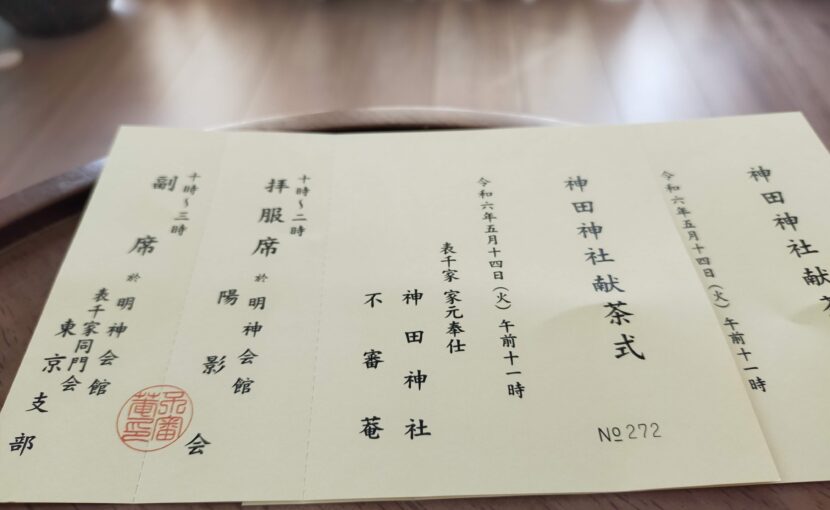 神田神社献茶
令和六年五月十四日（火）午前十一時
神田神社献茶式
№272
令和六年五月十四日（火）午前十一時
表千家 家元奉仕
神田神社
不審菴
十時〜二時
拝服席 於 明神会館
陽影会
十時〜三時
副席 於 明神会館
表千家同門会
東京支部
不審
菴印